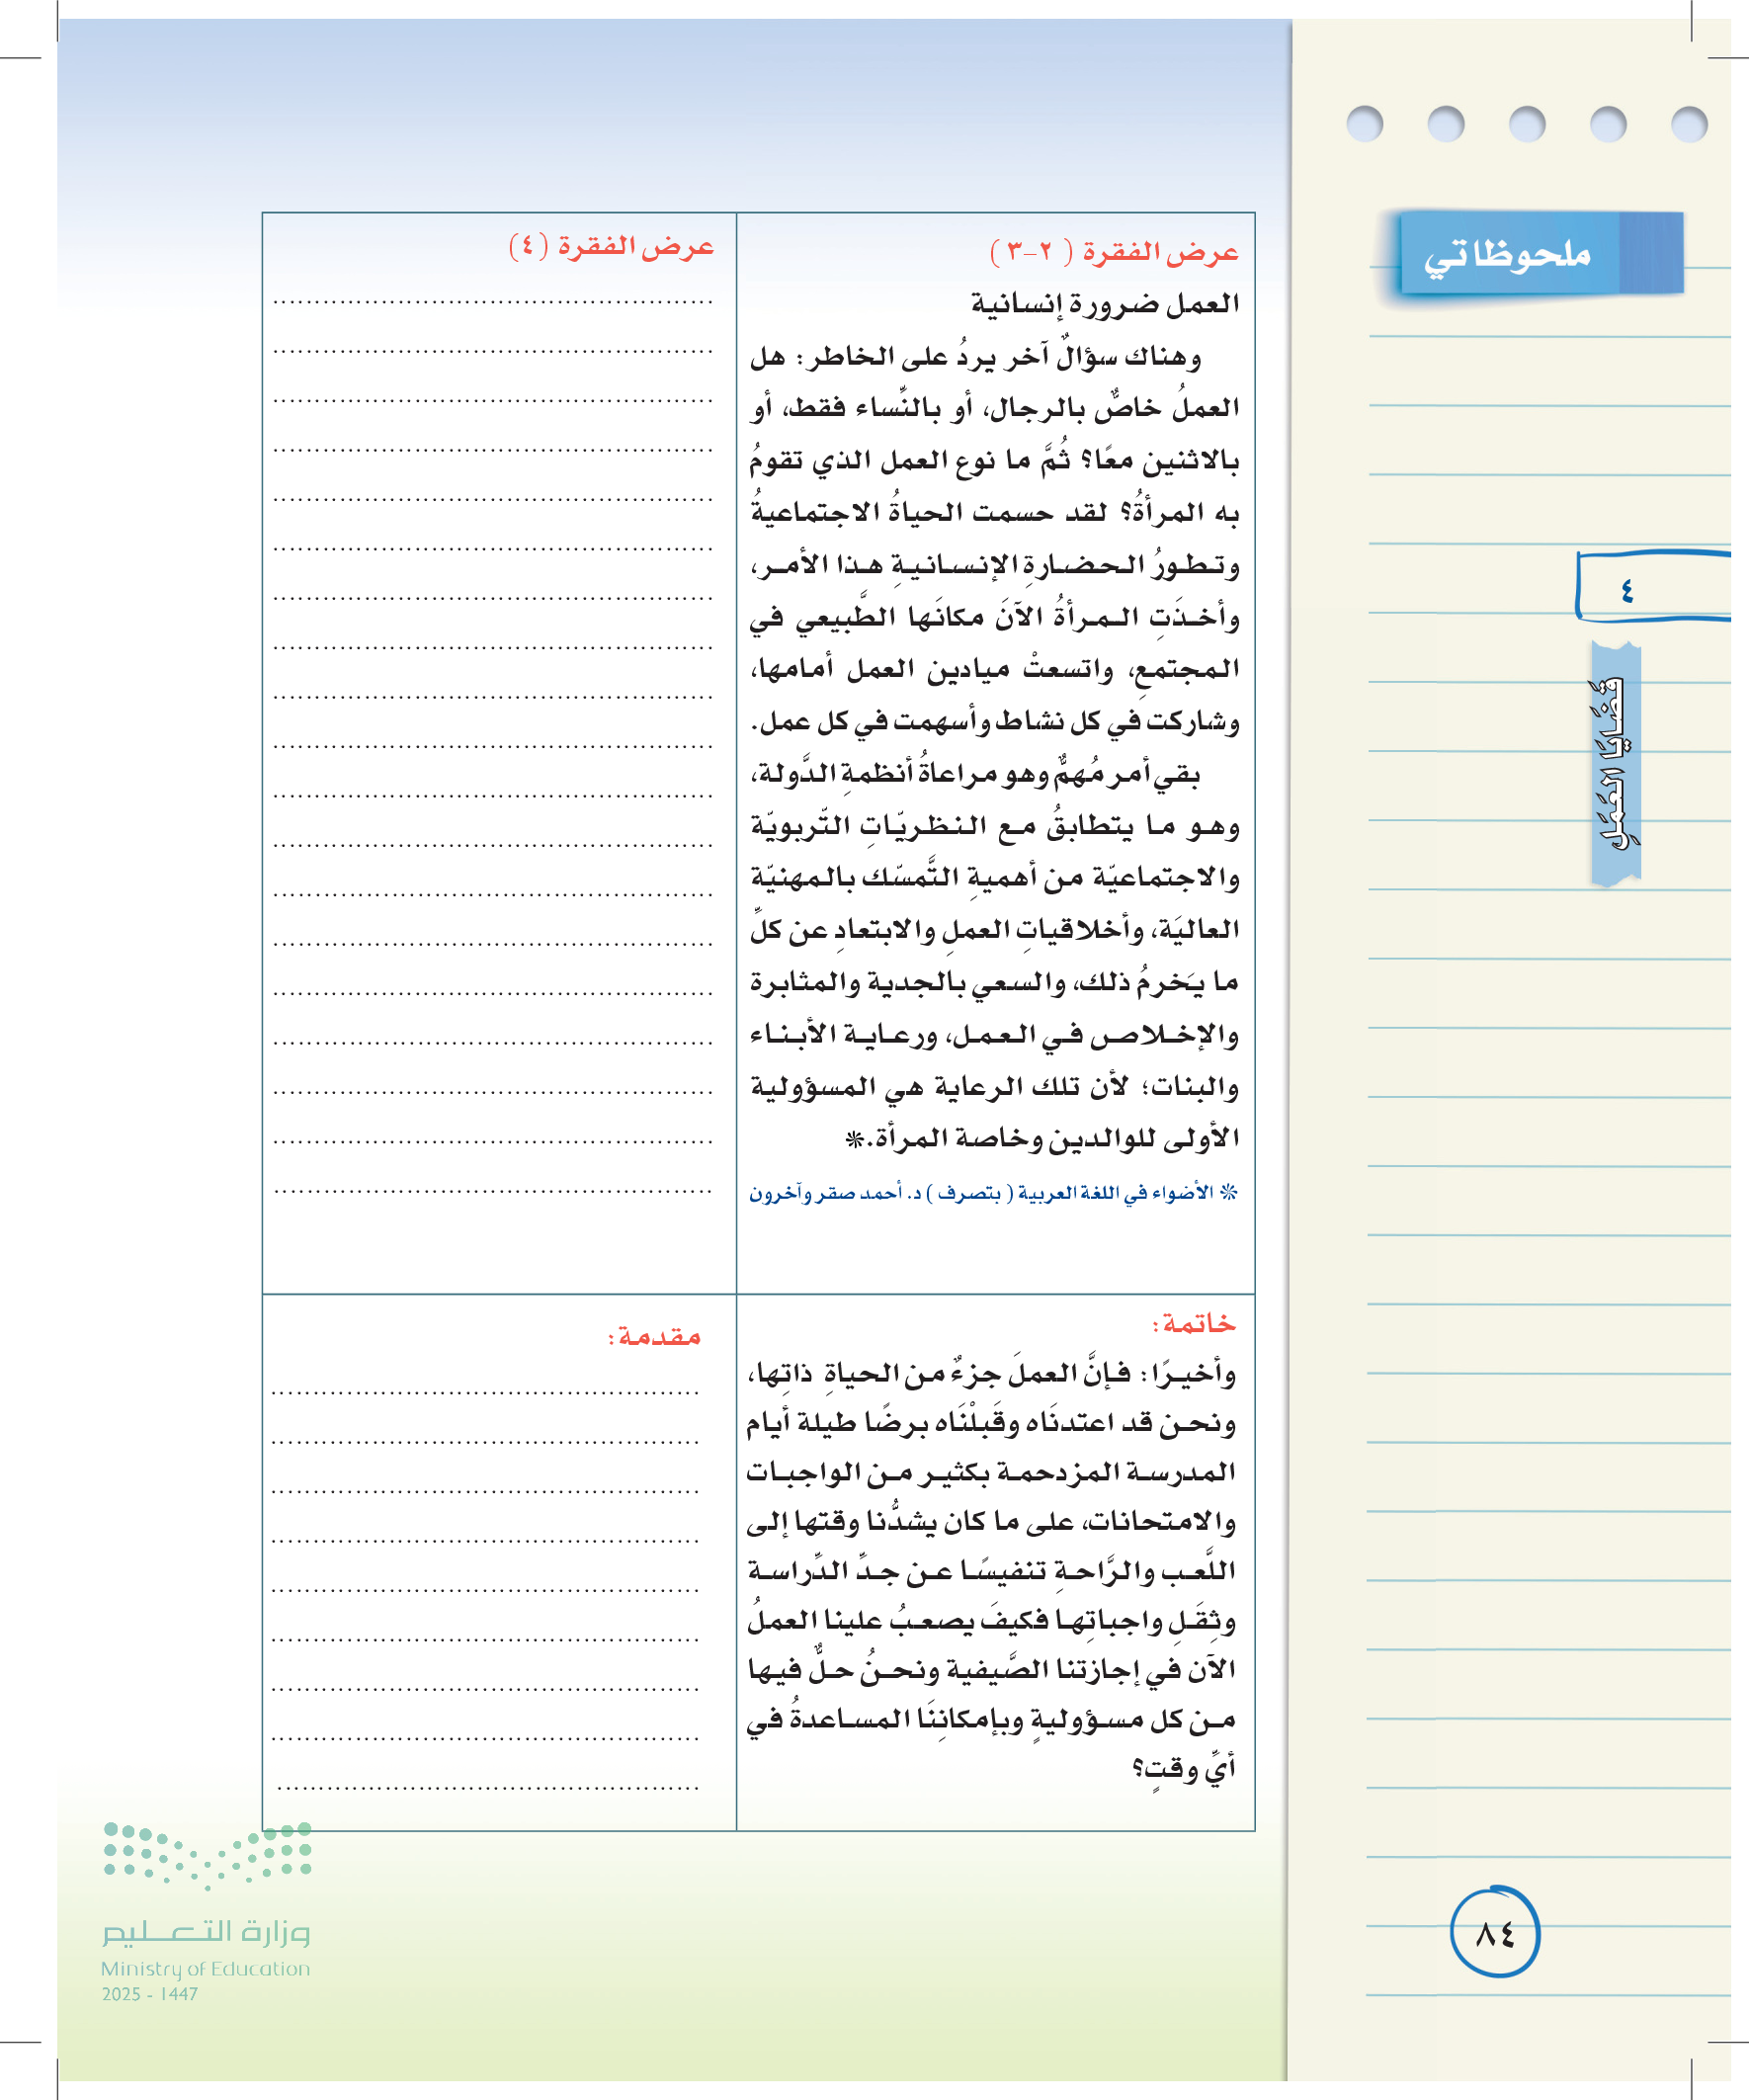 ملحوظاتي
٤
قَضَايَا العَمَلِ
عرض الفقرة ( ٢-٣ )
العمل ضرورة إنسانية
وهناك سؤالٌ آخر يردُ على الخاطر: هل
العملُ خاصٌّ بالرجال، أو بالنِّساء فقط، أو
بالاثنين معًا؟ ثُمَّ ما نوع العمل الذي تقومُ
به المرأةُ؟ لقد حسمت الحياةُ الاجتماعيةُ
وتطورُ الحضارةِ الإنسانيةِ هذا الأمر،
وأخذَتِ المرأةُ الآنَ مكانَها الطَّبيعي في
المجتمعِ، واتسعتْ ميادين العمل أمامها،
وشاركت في كل نشاط وأسهمت في كل عمل.
بقي أمر مُهمٌّ وهو مراعاةُ أنظمةِ الدَّولة،
وهو ما يتطابقُ مع النظريّاتِ التّربويّة
والاجتماعيّة من أهميةِ التَّمسّك بالمهنيّة
العاليَة، وأخلاقياتِ العملِ والابتعادِ عن كلِّ
ما يَخرمُ ذلك، والسعي بالجدية والمثابرة
والإخلاص في العمل، ورعاية الأبناء
والبنات؛ لأن تلك الرعاية هي المسؤولية
الأولى للوالدين وخاصة المرأة.*
* الأضواء في اللغة العربية ( بتصرف ) د. أحمد صقر وآخرون
عرض الفقرة (٤)
خاتمة:
وأخيرًا: فإنَّ العملَ جزءٌ من الحياةِ ذاتِها،
ونحن قد اعتدنَاه وقَبلْنَاه برضًا طيلة أيام
المدرسة المزدحمة بكثير من الواجبات
والامتحانات، على ما كان يشدُّنا وقتها إلى
اللَّعب والرَّاحةِ تنفيسًا عن جدِّ الدِّراسة
وثِقَلِ واجباتِها فكيفَ يصعبُ علينا العملُ
الآن في إجازتنا الصَّيفية ونحنُ حلٌّ فيها
من كل مسؤوليةٍ وبإمكانِنَا المساعدةُ في
أيِّ وقتٍ؟
مقدمة:
وزارة التعليم
Ministry of Education
2025 - 1447
٨٤